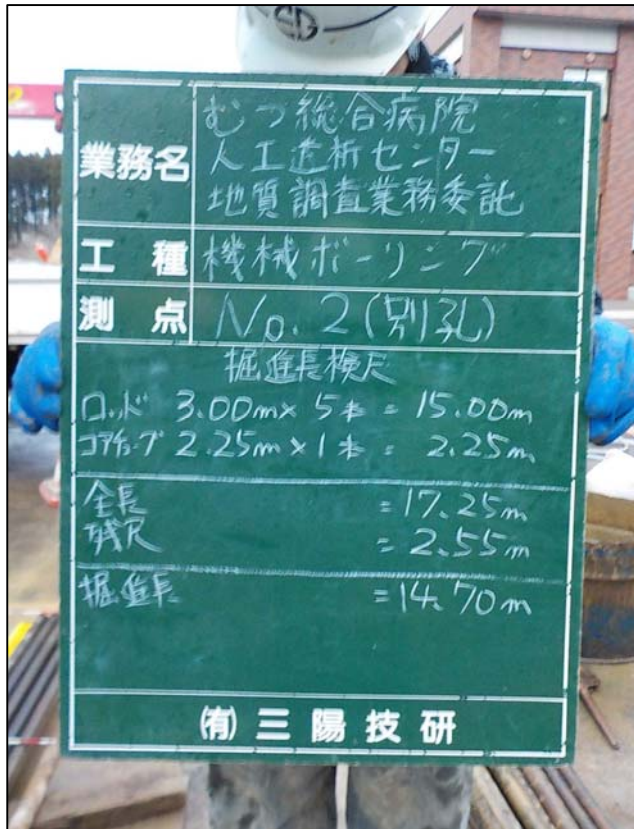 SG
業務名
むつ総合病院
人工透析センター
地質調査業務委託
工種
機械ボーリング
測点
No.2(別孔)
掘進長検尺
ロッド 3.00m×5本=15.00m
コアチューブ 2.25m×1本=2.25m
全長 =17.25m
残尺 =2.55m
掘進長 =14.70m
(有)三陽技研